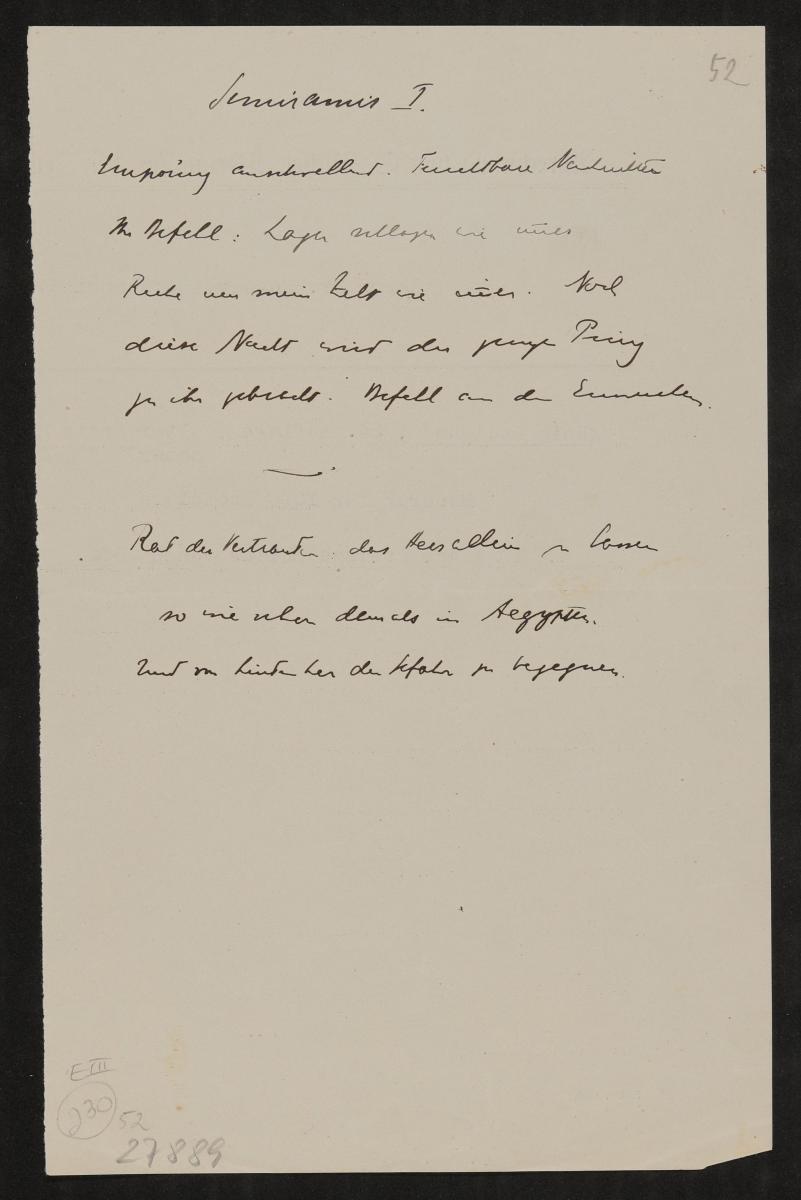 52
Semiramis I.
Empörung anschwellend. Furchtbare Nachrichten
Ihr Befehl: Lager schlagen wie immer
Ruhe um mein Zelt wie immer. Noch
diese Nacht wird der junge Prinz
zu ihr gebracht. Befehl an den Eunuchen.
Rat der Vertrauten das Heer allein zu lassen
so wie schon damals in Aegypten.
Und von hinten her der Gefahr zu begegnen.
E III
230
52
27889